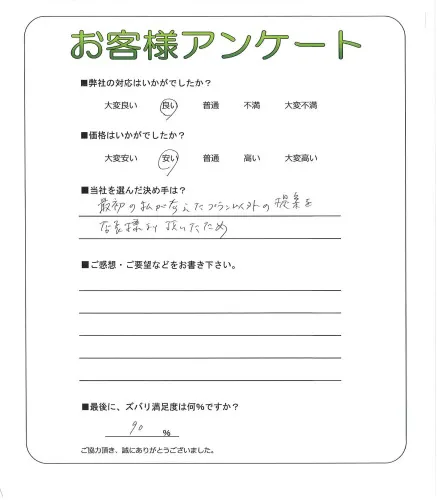 お客様アンケート
■弊社の対応はいかがでしたか?
大変良い 良い 普通 不満 大変不満
■価格はいかがでしたか?
大変安い 安い 普通 高い 大変高い
■当社を選んだ決め手は?
最初の私が考えたプラン以外の提案を
店長様より頂いたため
■ご感想・ご要望などをお書き下さい。
■最後に、ズバリ満足度は何%ですか?
90 %
ご協力頂き、誠にありがとうございました。